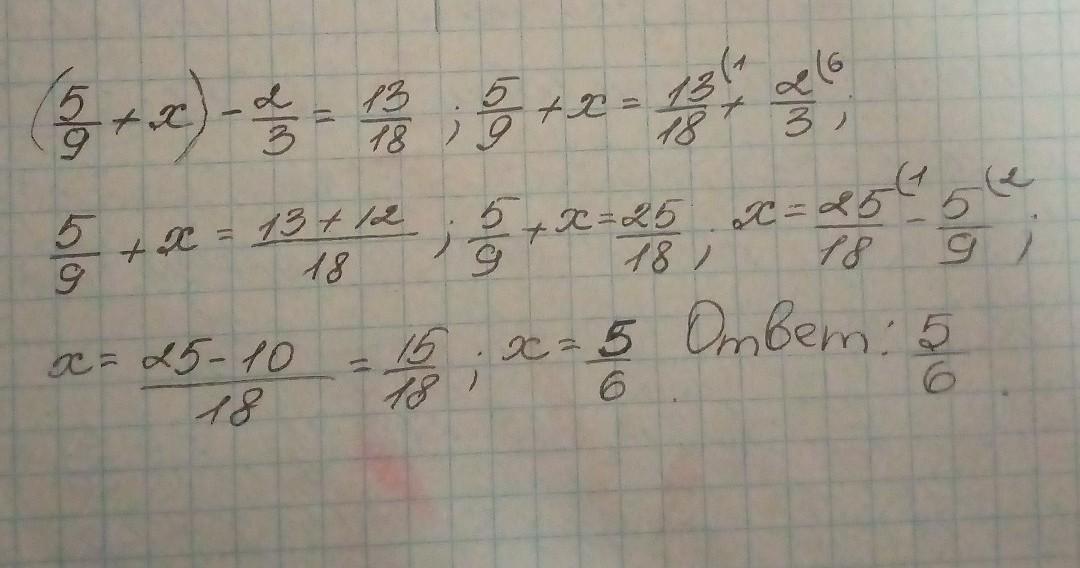 (5/9 + x) - 2/3 = 13/18 ; 5/9 + x = 13/18 (1 + 2/3 (6 ;
5/9 + x = 13+12/18 ; 5/9 + x = 25/18 ; x = 25/18 (1 - 5/9 (2 ;
x = 25-10/18 = 15/18 ; x = 5/6 . Ответ: 5/6 .